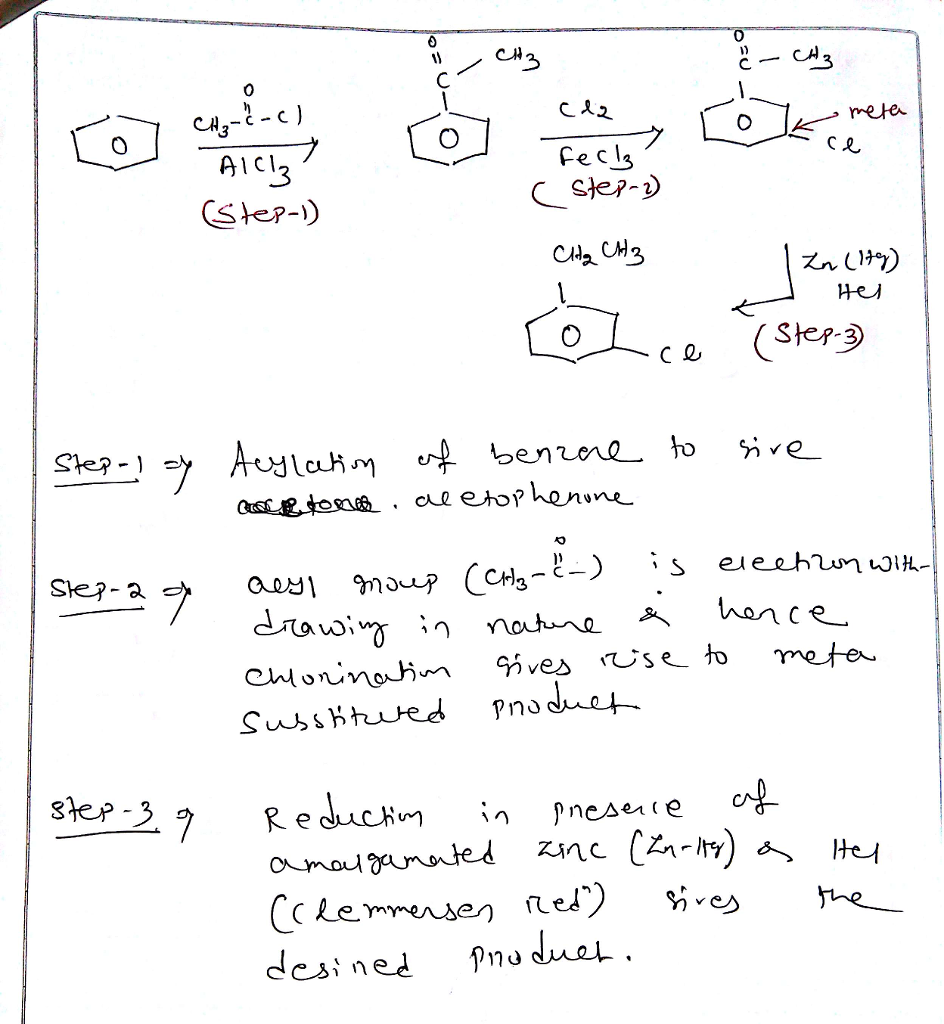 O
CH3-C-Cl
AlCl3
(Step-1)
O
C
CH3
O
Cl2
FeCl3
(Step-2)
O
C - CH3
O
meta
Cl
Zn(Hg)
HCl
(Step-3)
CH2 CH3
O
Cl
Step-1 ⇒ Acylation of benzene to give
acetophenone
Step-2 ⇒ acyl group (CH3-C-) is electron with-
O
drawing in nature & hence
chlorination gives rise to meta
Substituted product
Step-3 ⇒ Reduction in presence of
amalgamated zinc (Zn-Hg) & HCl
(Clemmensen redn) gives the
desired product.